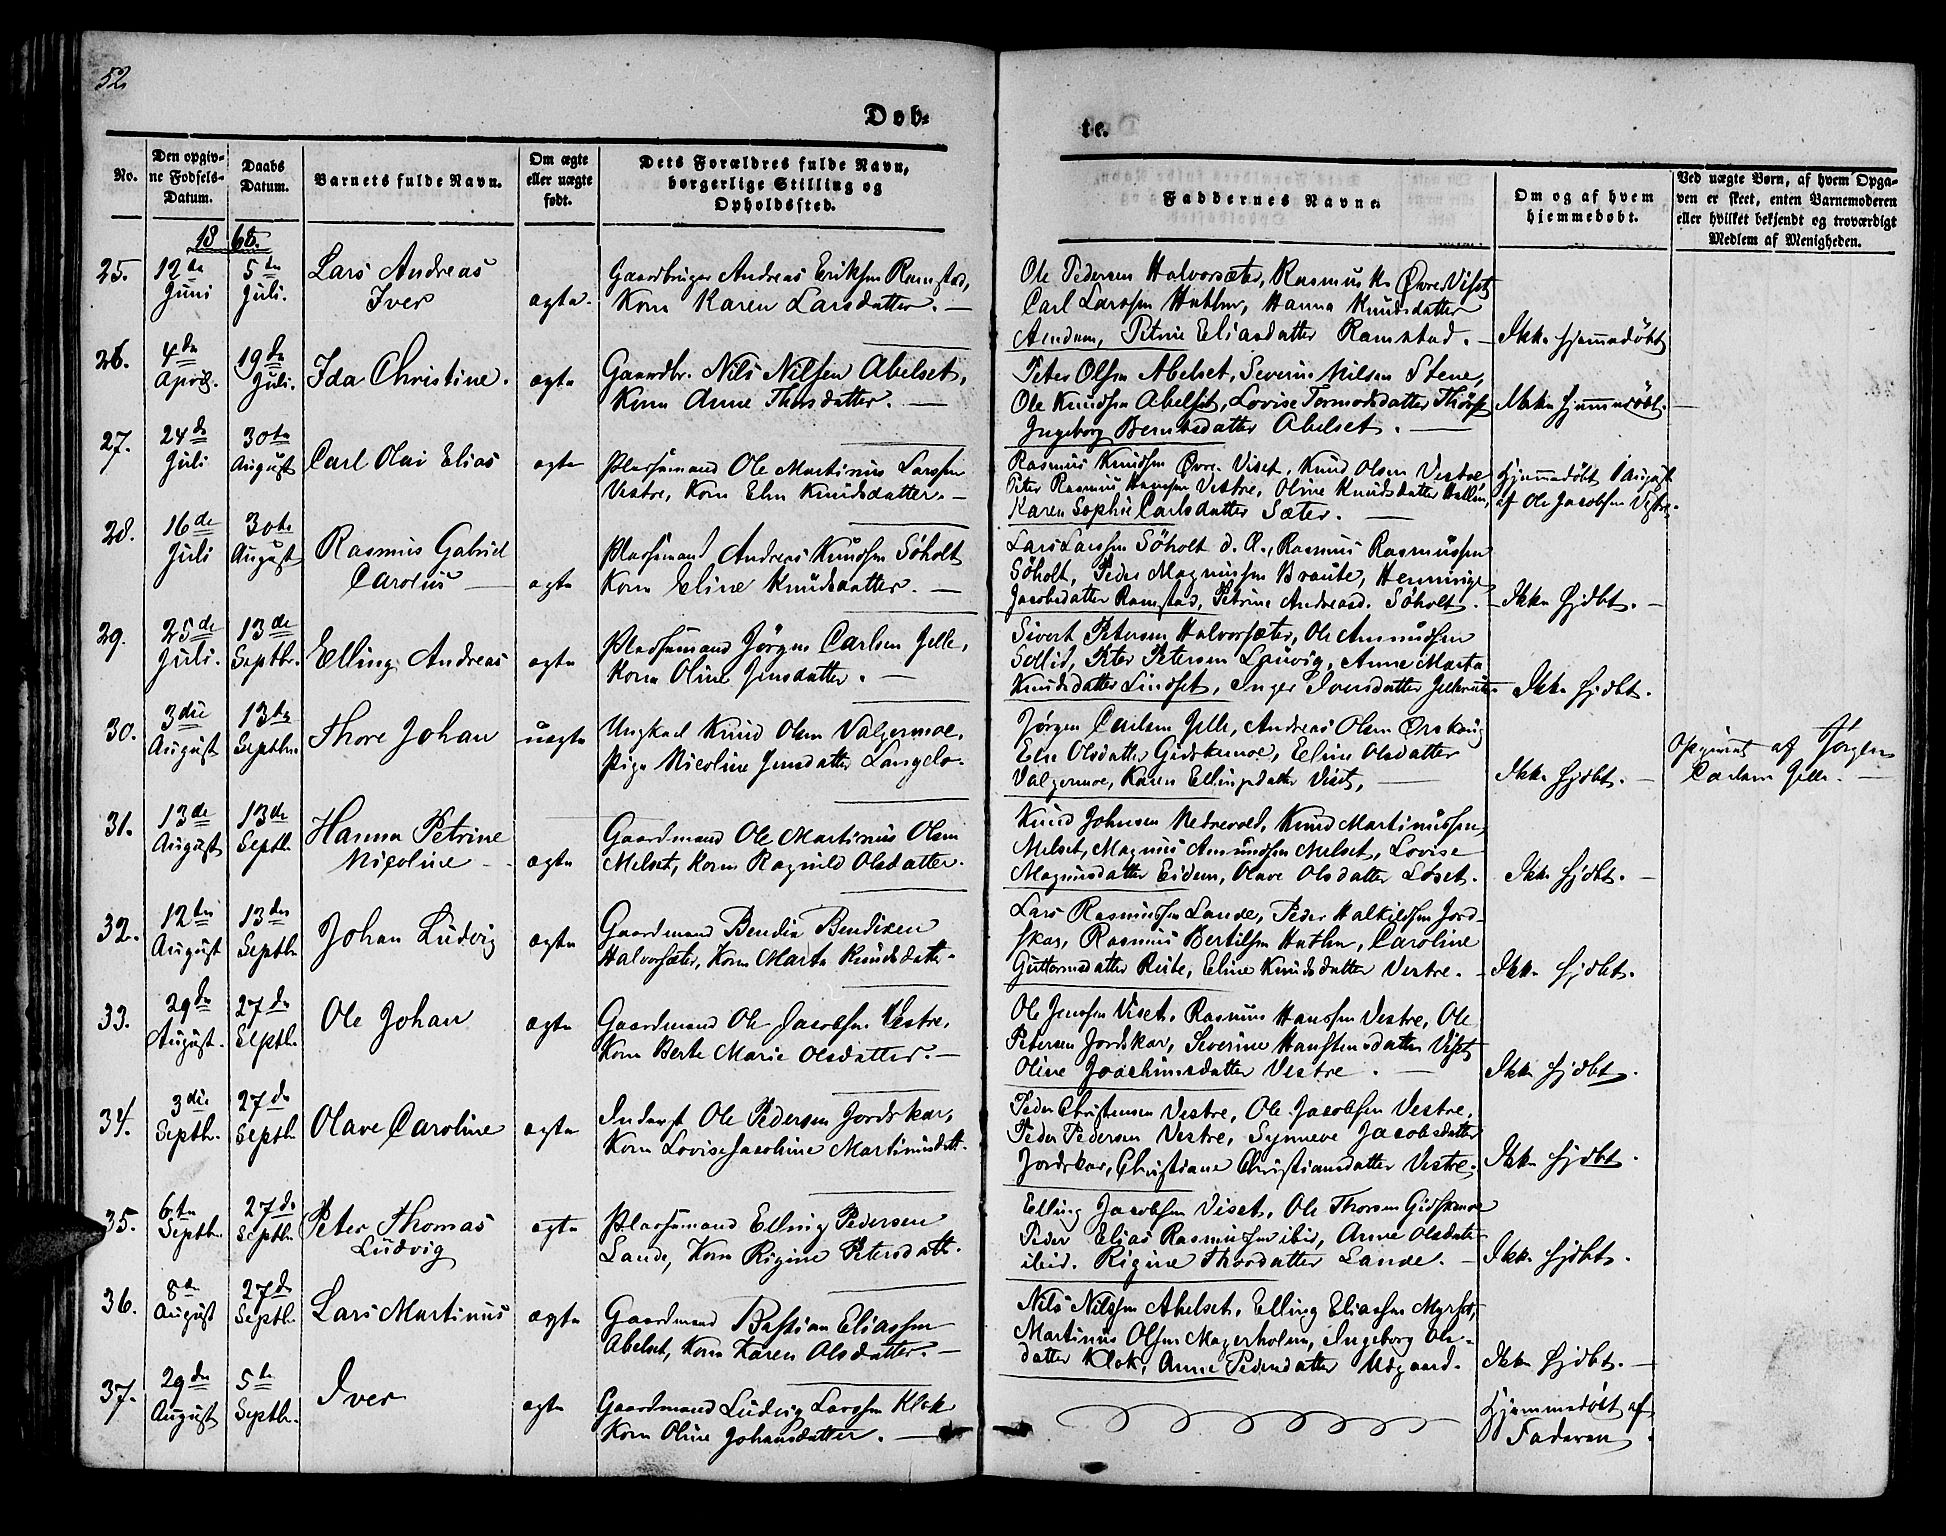 52
Døb-
te.
No.
Den opgiv-
ne Fødsels-
Datum.
Daabs
Datum.
Barnets fulde Navn.
Om ægte
eller uægte
født.
Dets Forældres fulde Navn,
borgerlige Stilling og
Opholdssted.
Faddernes Navne.
Om og af hvem
hjemmedøbt.
Ved uægte Børn, af hvem Opga-
ven er skeet, enten Barnemoderen
eller hvilket bekjendt og troværdigt
Medlem af Menigheden.
25.
12te
Juni
5te
Juli.
Lars Andreas
Iver
ægte.
Gaardbruger Andreas Eriksen Ramstad,
Kone Karen Larsdatter. —
Ole Pedersen Halvorsæter, Rasmus K. Øvre Viset
Carl Larssen Hatlen, Hanna Knudsdatter
Amdam, Petrine Eliasdatter Ramstad. —
Ikke hjemmedøbt
26.
4de
April.
19de
Juli.
Ida Christine.
ægte
Gaardbr. Nils Nilsen Abelset,
Kone Anne Thorsdatter. —
Peter Olsen Abelset, Severin Nilsen Stene,
Ole Knudsen Abelset, Lovise Tormodsdatter
Ingeborg Berntsdatter Abelset. —
Ikke hjemmedøbt. —
27.
24de
Juli
30te
August
Carl Olai Elias
ægte
Pladsemand Ole Martinus Larssen
Vestre, Kone Elen Knudsdatter. —
Rasmus Knudsen Øvre Viset, Knud Olsen Vestre,
Peter Rasmus Hanssen Vestre, Oline Knudsdatter Hatlen,
Karen Sophie Carlsdatter Sæter. —
Hjemmedøbt 1 August
af Ole Jacobsen Vestre.
28.
16de
Juli
30te
August
Rasmus Gabriel
Carolus —
ægte
Pladsemand Andreas Knudsen Søholt
Kone Eline Knudsdatter. —
Lars Larssen Søholt d. Æ., Rasmus Rasmussen
Søholt, Peder Magnussen Braute, Hemminge
Jacobsdatter Ramstad, Petrine Andreasd. Søholt. —
Ikke hjdbt. —
29.
25de
Juli.
13de
Septbr.
Elling Andreas
ægte
Pladsemand Jørgen Carlsen Gjelle,
Kone Oline Jensdatter. —
Sivert Petersen Halvorsæter, Ole Amundsen
Sollid, Peter Petersen Lauvig, Anne Marta
Knudsdatter Lindset, Inger Ivarsdatter
Ikke hjdbt. —
30.
3die
August
13te
Septbr.
Thore Johan
uægte
Ungkarl Knud Olsen Valgermoe,
Pige Nicoline Jensdatter Langelo.
Jørgen Carlsen Gjelle, Andreas Olsen Ørskoug
Else Olsdatter Gidskemoe, Eline Olsdatter
Valgermoe, Karen Ellingsdatter Viset, —
Ikke hjdbt. —
Opgivet af Jørgen
Carlsen Gjelle. —
31.
13de
August
13de
Septbr.
Hanna Petrine
Nicoline —
ægte
Gaardmand Ole Martinus Olsen
Melset, Kone Ragnild Olsdatter.
Knud Johnsen Nedrevold, Knud Martinussen
Melset, Magnus Amundsen Melset, Lovise
Magnusdatter Eidem, Olave Olsdatter Løset.
Ikke hjdbt. —
32.
12te
August
13de
Septbr.
Johan Ludvig
ægte
Gaardmand Bendix Bendixen
Halvorsæter, Kone Marte Knudsdatter.
Lars Rasmussen Lande, Peder Halkildsen Jord-
skar, Rasmus Bertilsen Hatlen, Caroline
Guttormsdatter Reite, Eline Knudsdatter Vestre. —
Ikke hjdbt.
33.
29de
August.
27de
Septbr.
Ole Johan
ægte
Gaardmand Ole Jacobsen Vestre,
Kone Berte Marie Olsdatter. —
Ole Jenssen Viset, Rasmus Hanssen Vestre, Ole
Petersen Jordskar, Severine Hanstensdatter Viset
Oline Joachimsdatter Vestre. —
Ikke hjdbt.
34.
3die
Septbr.
27de
Septbr.
Olave Caroline
ægte
Inderst Ole Pedersen Jordskar,
Kone Lovise Jacobine Martinusdatt.
Peder Christensen Vestre, Ole Jacobsen Vestre,
Peder Pedersen Vestre, Synneve Jacobsdatter
Jordskar, Christiane Christiansdatter Vestre.
Ikke hjdbt.
35.
6te
Septbr.
27de
Septbr.
Peter Thomas
Ludvig
ægte
Pladsemand Elling Pedersen
Lande, Kone Rigine Petersdatt.
Elling Jacobsen Viset, Ole Thorsen Gidskemoe
Peder Elias Rasmussen ibid, Anne Olsdatter
ibid. Rigine Thorsdatter Lande. —
Ikke hjdbt.
36.
8de
August
27de
Septbr.
Lars Martinus
ægte
Gaardmand Bastian Eliassen
Abelset, Kone Karen Olsdatter. —
Nils Nilssen Abelset, Elling Eliassen Myrset,
Martinus Olsen Magerholm, Ingeborg Ole-
datter Klok, Anne Pedersdatter Udgaard.
Ikke hjdbt. —
37.
29de
August
5te
Septbr.
Iver
ægte
Gaardmand Ludvig Larssen Klok
Kone Oline Johansdatter. —
Hjemmedøbt af
Faderen.